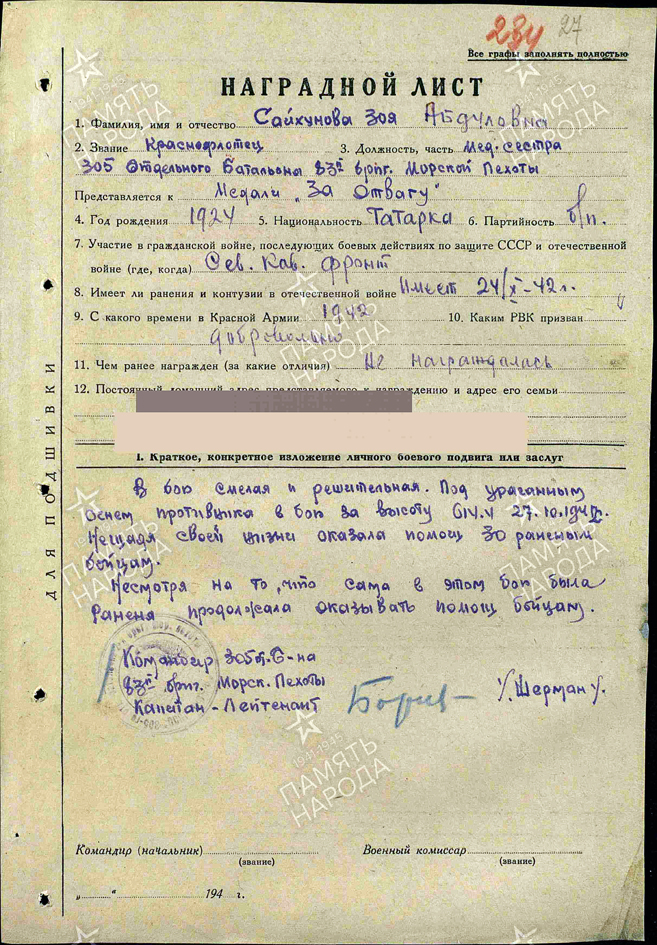 284 27
Все графы заполнять полностью
НАГРАДНОЙ ЛИСТ
1. Фамилия, имя и отчество Сайхунова Зоя Абдуловна
2. Звание Краснофлотец 3. Должность, часть Мед. сестра
305 Отдельного Батальона 83й бриг. Морской Пехоты
Представляется к Медали „За Отвагу"
4. Год рождения 1924 5. Национальность Татарка 6. Партийность б/п.
7. Участие в гражданской войне, последующих боевых действиях по защите СССР и отечественной
войне (где, когда) Сев. Кав. фронт
8. Имеет ли ранения и контузии в отечественной войне Имеет 24/X-42 г.
9. С какого времени в Красной Армии 1942 10. Каким РВК призван
добровольно
11. Чем ранее награжден (за какие отличия) Не награждалась
12. Постоянный домашний адрес представляемого к награждению и адрес его семьи
I. Краткое, конкретное изложение личного боевого подвига или заслуг
В бою смелая и решительная. Под ураганным
Огнем противника в бою за высоту 27.10.1942г.
Нещадя своей жизни оказала помощ 30 раненым
бойцам.
Несмотря на то, что сама в этом бою была
Раненя продолжала оказывать помощ бойцам.
Командир 305 от. б-на
83й бриг. Морск. Пехоты
Капитан-Лейтенант /Шерман/.
Командир (начальник) Военный комиссар
(звание) (звание)
„ " 194 г.
ДЛЯ ПОДШИВКИ
1941-1945
ПАМЯТЬ
НАРОДА